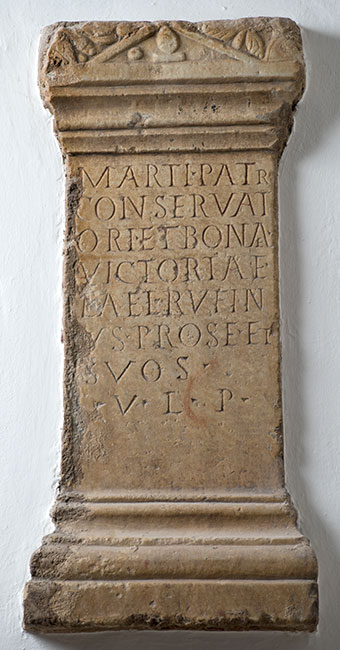 MARTI·PATR
CONSERVAT
ORI·ET BONÆ
VICTORIAE
L AEL·RVFIN
VS·PRO SE·ET
SVOS·
V·L·P·